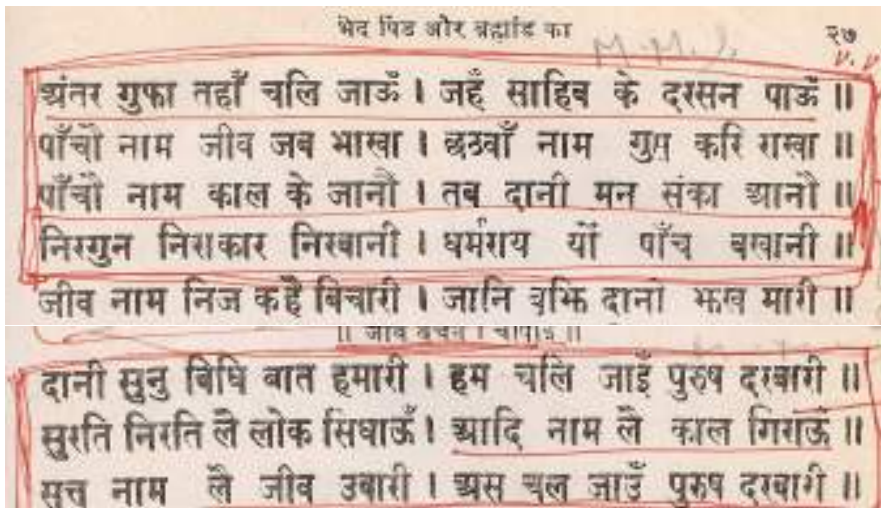 भेद पिंड और ब्रह्मांड का २७
अंतर गुफा तहाँ चलि जाऊँ । जहँ साहिब के दरसन पाऊँ ॥
पाँचो नाम जीव जब भाखा । छठवाँ नाम गुप्त करि राखा ॥
पाँचो नाम काल के जानौ । तब दानी मन संका आनौ ॥
निरगुन निराकार निरबानी । धर्मराय यों पाँच बखानी ॥
जीव नाम निज कहै बिचारी । जानि बूझि दानो झख मारी ॥
॥ जीव बचन । चौपाई ॥
दानी सुनु बिधि बात हमारी । हम चलि जाइँ पुरुष दरबारी ॥
सुरति निरति लै लोक सिधाऊँ । आदि नाम लै काल गिराऊँ ॥
सत्त नाम लै जीव उबारी । अस चल जाउँ पुरुष दरबारी ॥